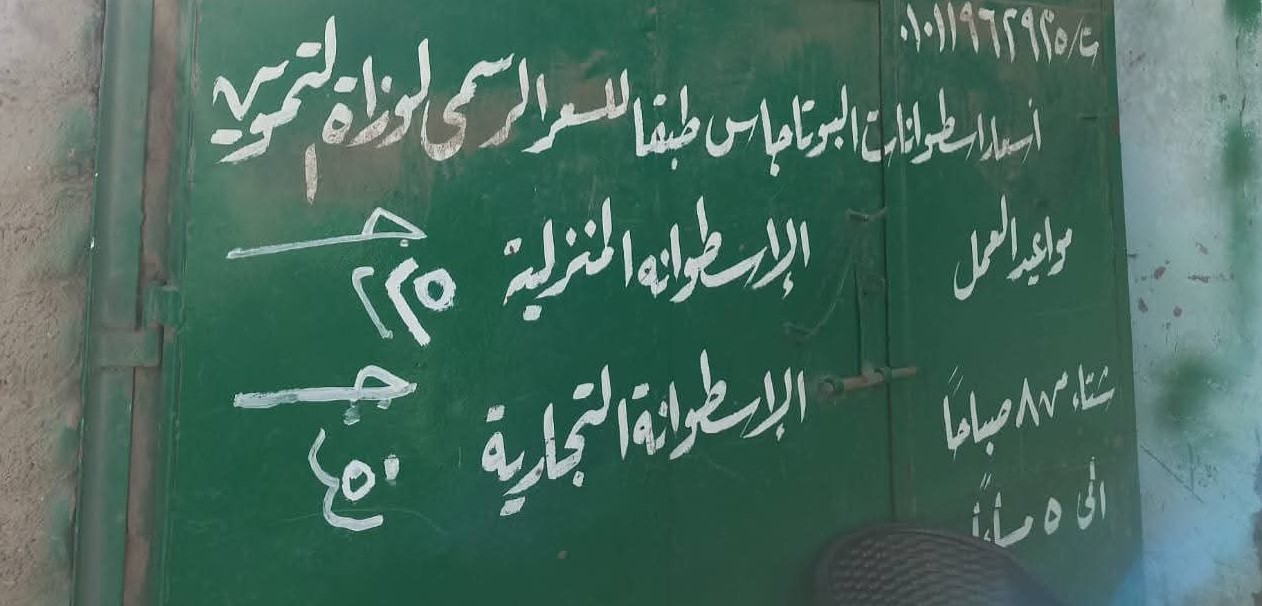 ت/٠١٠١١٩٦٢٩٢٥
أسعار اسطوانات البوتاجاس طبقا للسعر الرسمى لوزاة التموين
مواعيد العمل
شتاء من ٨ صباحاً
الى ٥ مساءاً
الإسطوانه المنزلية ٢٢٥ جـ
الإسطوانة التجارية ٤٥٠ جـ